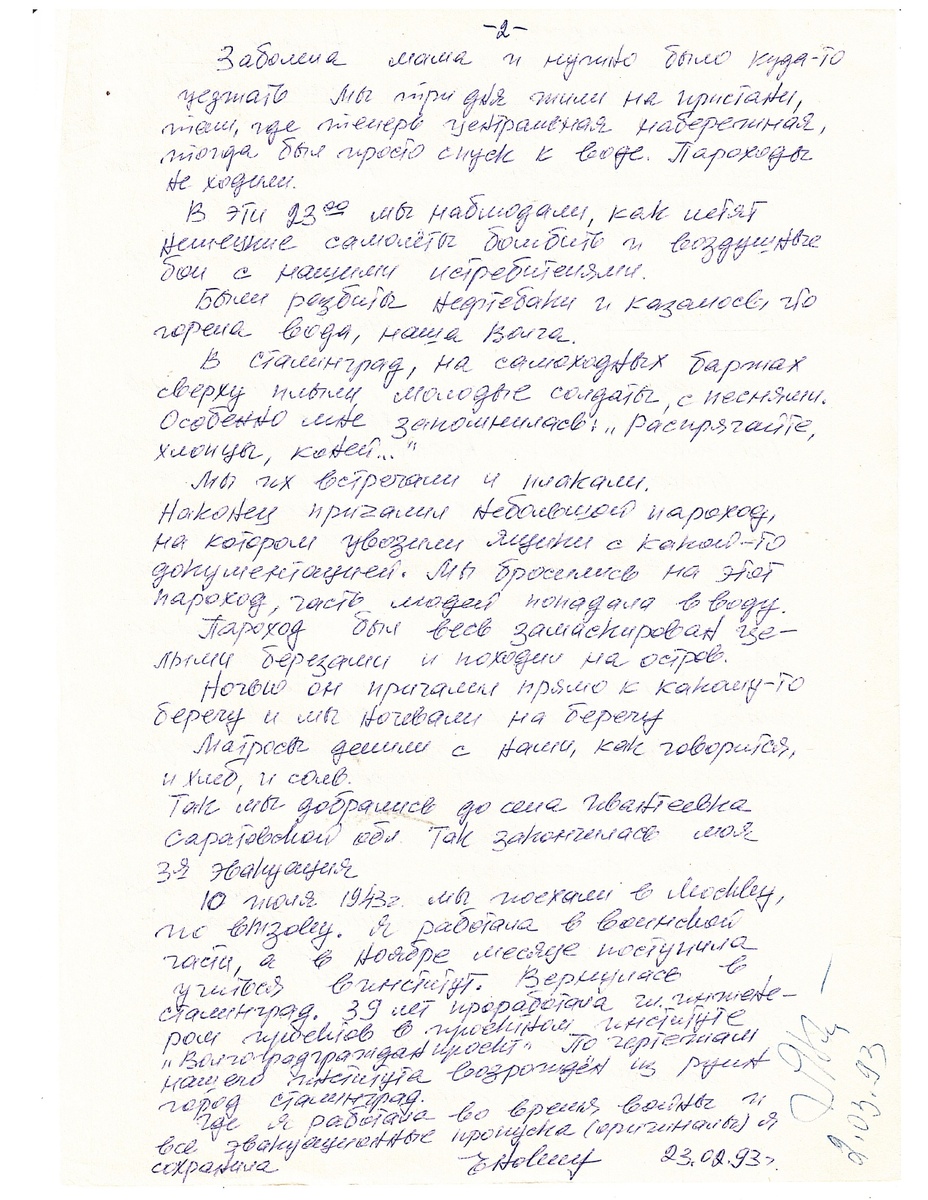 -2-
Заболела мама и нужно было куда-то
уезжать Мы три дня жили на пристани,
там, где теперь центральная набережная,
тогда был просто спуск к воде. Пароходы
не ходили.
В эти 23 мы наблюдали, как летят
немецкие самолёты бомбить и воздушные
бои с нашими истребителями.
Были разбиты нефтебаки и казалось, что
горела вода, наша Волга.
В Сталинград, на самоходных баржах
сверху плыли молодые солдаты, с песнями.
Особенно мне запомнилась: „Распрягайте,
хлопцы, коней..."
Мы их встречали и плакали.
Наконец причалил небольшой пароход,
на котором увозили ящики с какой-то
документацией. Мы бросились на этот
пароход, часть людей попадала в воду.
Пароход был весь замаскирован це-
лыми березами и походил на остров.
Ночью он причалил прямо к какому-то
берегу и мы ночевали на берегу
Матросы делили с нами, как говорится,
и хлеб, и соль.
Так мы добрались до села Ивантеевка
Саратовской обл. Так закончилась моя
3я эвакуация
10 июля 1943г. мы поехали в Москву,
по вызову. Я работала в воинской
части, а в ноябре месяце поступила
учиться в институт. Вернулась в
Сталинград. 39 лет проработала гл. инжене-
ром проектов в проектном институте
„Волгоградгражданпроект" По чертежам
нашего института возрождён из руин
город Сталинград.
Где я работала во время войны и
все эвакуационные пропуска (оригиналы) я
сохранила
23.02.93г.
2.03.93